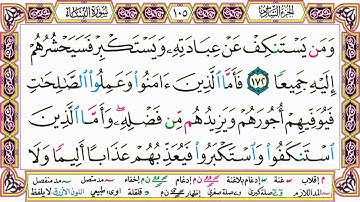 الجزء السادس ١٠٥ سورة النساء
وَمَن يَسْتَنكِفْ عَنْ عِبَادَتِهِۦ وَيَسْتَكْبِرْ فَسَيَحْشُرُهُمْ
إِلَيْهِ جَمِيعًا ١٧٢ فَأَمَّا ٱلَّذِينَ ءَامَنُوا۟ وَعَمِلُوا۟ ٱلصَّـٰلِحَـٰتِ
فَيُوَفِّيهِمْ أُجُورَهُمْ وَيَزِيدُهُم مِّن فَضْلِهِۦ ۖ وَأَمَّا ٱلَّذِينَ
ٱسْتَنكَفُوا۟ وَٱسْتَكْبَرُوا۟ فَيُعَذِّبُهُمْ عَذَابًا أَلِيمًا وَلَا